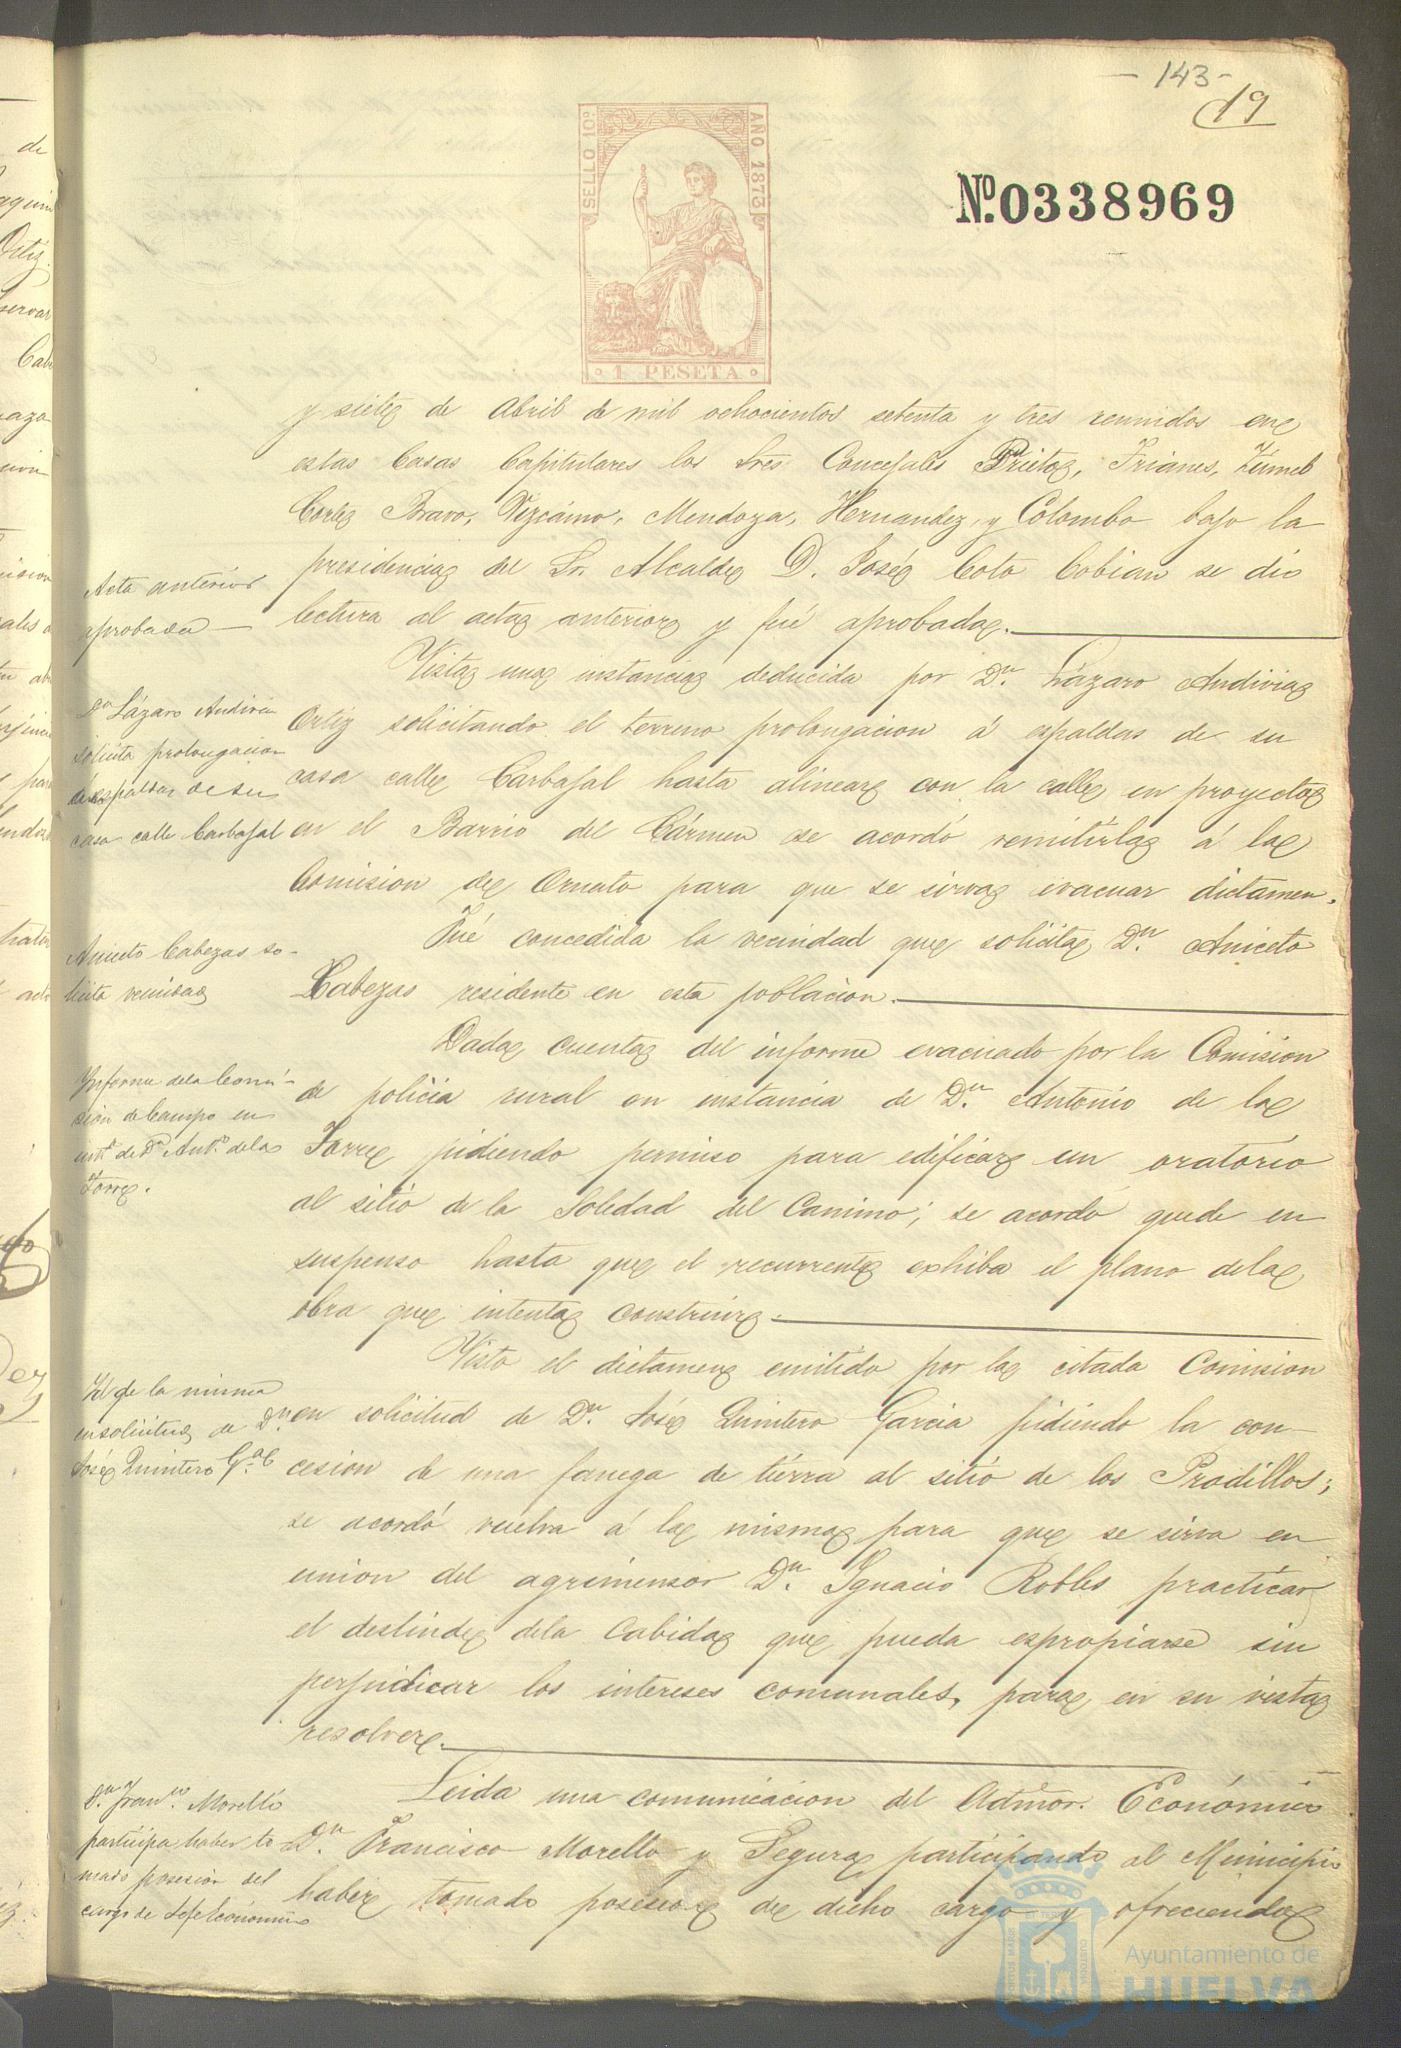 - 143 -
19
SELLO 10º
AÑO 1873
1 PESETA
Nº. 0338969
y siete de Abril de mil ochocientos setenta y tres reunidos en
estas Casas Capitulares los Sres Concejales Prieto, Trianes, Zúmel
Cortés Bravo, Vizcaino, Mendoza, Hernandez, y Colombo bajo la
presidencia del Sr. Alcalde D. José Coto Cobian se dio
lectura al acta anterior y fué aprobada.
Acta anterior
aprobada
Vista una instancia deducida por Dn. Lázaro Andivia
Ortiz solicitando el terreno prolongacion á espaldas de su
casa calle Carbajal hasta alinear con la calle en proyecto
en el Barrio del Cármen se acordó remitirla á la
Comision de Ornato para que se sirva evacuar dictamen.
Dn Lázaro Andivia
solicita prolongacion
á espaldas de su
casa calle Carbajal
Fué concedida la vecindad que solicita Dn. Aniceto
Cabezas residente en esta poblacion.
Aniceto Cabezas so-
licita vecindad
Dada cuenta del informe evacuado por la Comision
de policia rural en instancia de Dn. Antonio de la
Torre pidiendo permiso para edificar un oratorio
al sitio de la Soledad del Camino; se acordó quede en
suspenso hasta que el recurrente exhiba el plano dela
obra que intenta construir.
Informe dela Comi-
sion de Campo en
inst. de Dn Anto. dela
Torre.
Visto el dictamen emitido por la citada Comision
en solicitud de Dn. José Quintero Garcia pidiendo la con-
cesion de una fanega de tierra al sitio de los Pradillos;
se acordó vuelva á la misma para que se sirva en
union del agrimensor Dn. Ignacio Robles practicar
el deslinde dela cabida que pueda espropiarse sin
perjudicar los intereses comunales, para en su vista
resolver.
Id de la misma
en solicitud de Dn
José Quintero Ga
Leida una comunicacion del Admor. Económico
Dn Francisco Morello y Segura participando al Municipio
haber tomado posesion de dicho cargo y ofreciendo
Dn. Franco. Morello
participa haber to-
mado posesion del
cargo de Jefe Económico
Ayuntamiento de
HUELVA